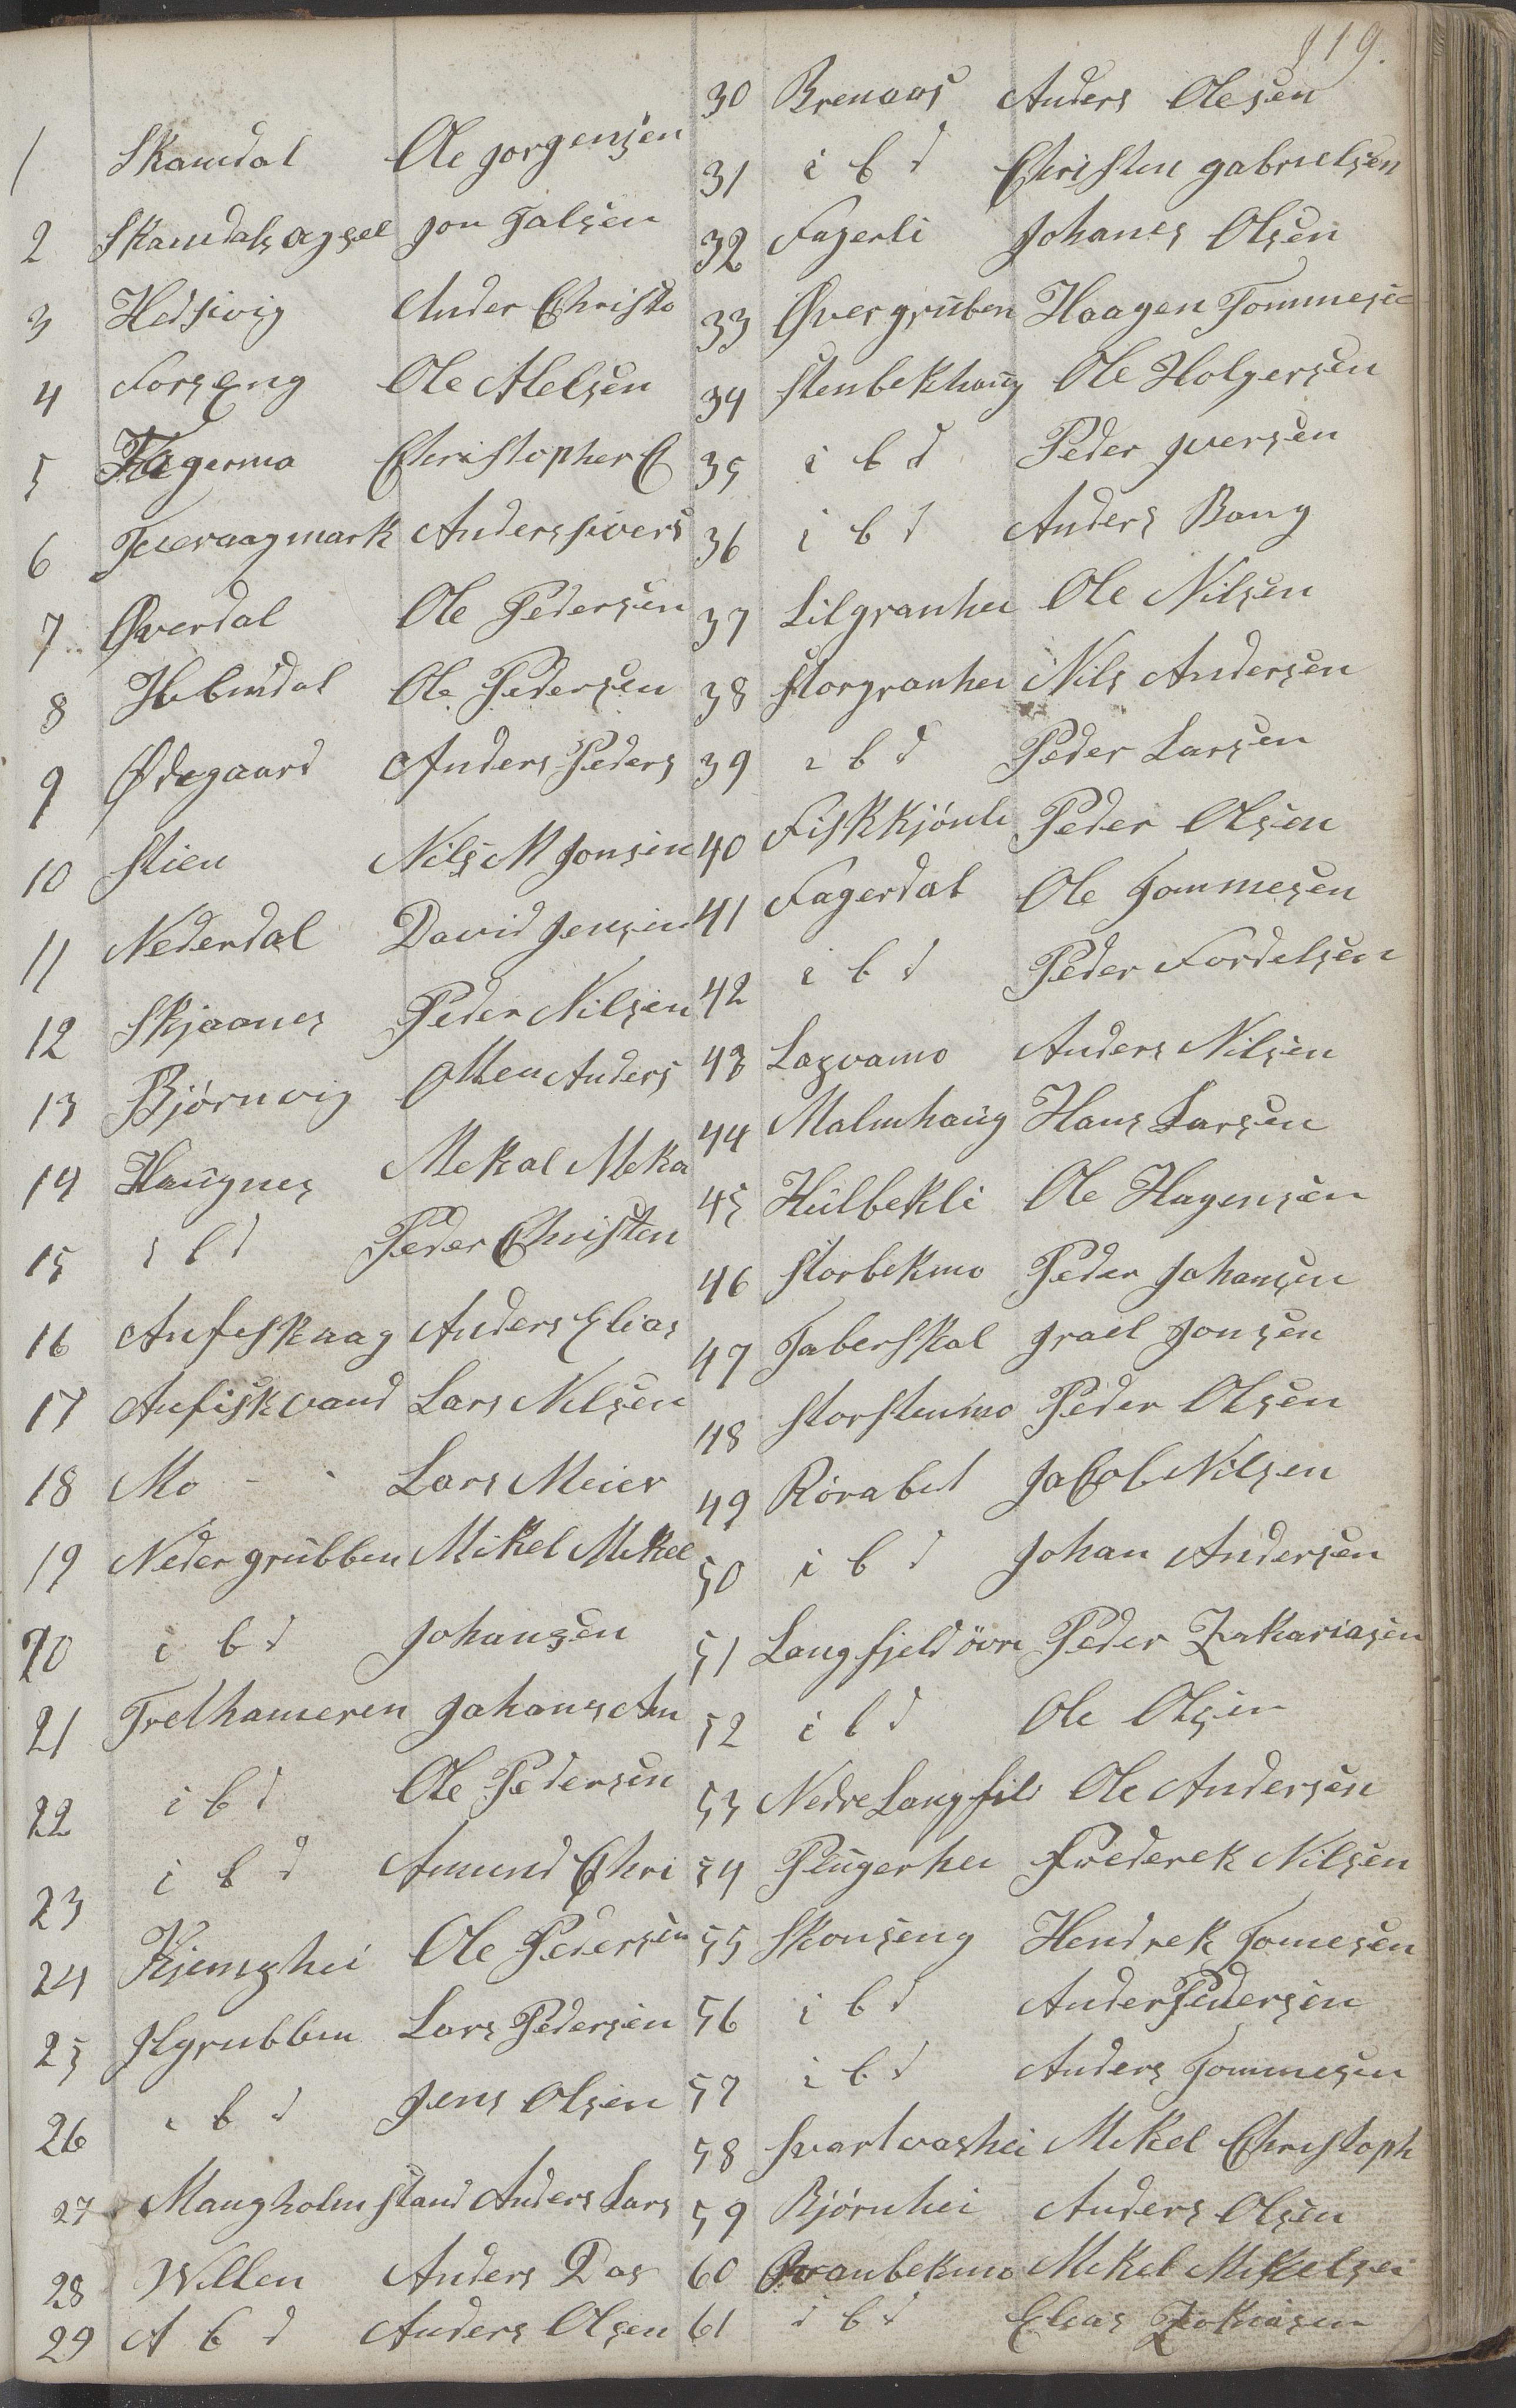 119.
1 Skamdal Ole Jorgensen
2 Skamdalsagsel Jon Jalsen
3 Hedsivig Ander Christo
4 Forseng Ole Alelsen
5 Hagermo Christopher C
6 Tveraagmark Anders Sivers
7 Øverdal Ole Pedersen
8 Ole Pedersen
9 Ødegaard Anders Peders
10 Stien Nils M Jonsen
11 Nederdal David Jensen
12 Skjaanes Peder Nilsen
13 Bjørnvig Anders
14 Haugnes Mekal Meka
15 i b d Peder Christen
16 Anfiskaag Anders Elias
17 Anfiskvand Lars Nilsen
18 Mo - - Lars Meier
19 Nedergrubben Mikel Mikel
20 i b d Johansen
21 Trelhameren Johans An
22 i b d Ole Pedersen
23 i b d Amund Chri
24 Kjemshei Ole Pedersen
25 Ilgrubben Lars Pedersen
26 i b d Jens Olsen
27 Mangholmstand Anders Lars
28 Willen Anders Das
29 A b d Anders Olsen
30 Brenaas Anders Olesen
31 i b d Christen Gabrielsen
32 Fagerli Johanes Olsen
33 Øvergruben Haagen Tommese
34 Stenbekhaug Ole Holgersen
35 i b d Peder Iversen
36 i b d Anders Bang
37 Lilgranhei Ole Nilsen
38 Storgranhei Nils Andersen
39 i b d Peder Larsen
40 Fiskkjönli Peder Olsen
41 Fagerdal Ole Tommesen
42 i b d Peder Fordelsen
43 Lasvamo Anders Nilsen
44 Malmhaug Hans Larsen
45 Hulbekli Ole Hagensen
46 Storbekmo Peder Johansen
47 Taberskal Israel Jonsen
48 Storstenmo Peder Olsen
49 Rörabet Jacob Nilsen
50 i b d Johan Andersen
51 Langfjeld övre Peder Zakariasen
52 i b d Ole Olsen
53 Nedre Langfild Ole Andersen
54 Plugerhei Frederek Nilsen
55 Skonseng Hendrek Tomesen
56 i b d Ander Pedersen
57 i b d Anders Tommesen
58 Svartvashei Mikel Christoph
59 Bjørnhei Anders Olsen
60 Granbekmo Mikel Mikelsen
61 i b d Elias Zakiasen